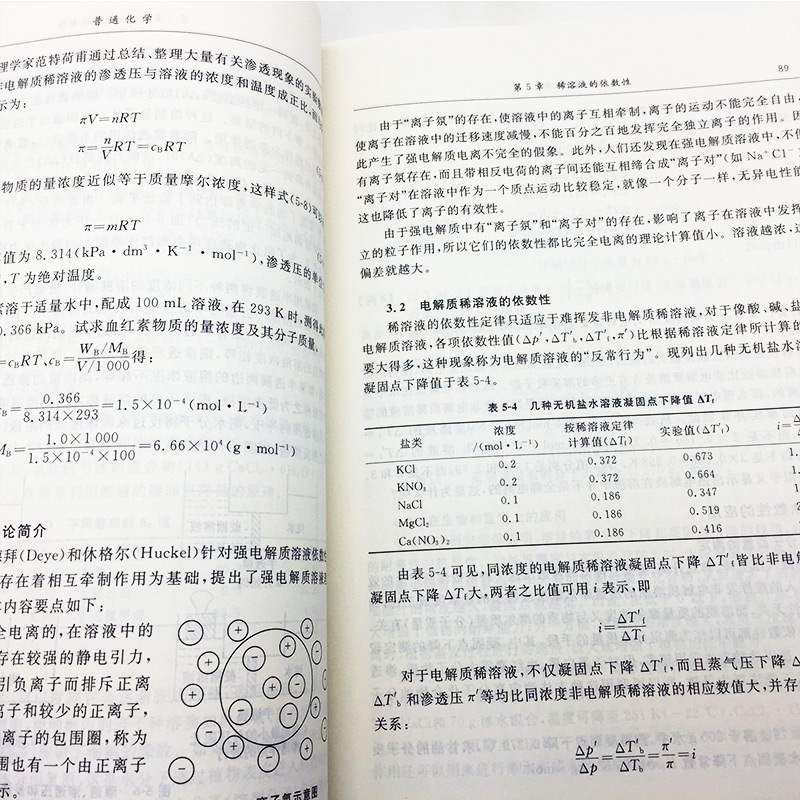 普通化学
理学家范特荷甫通过总结、整理大量有关渗透现象的实验
非电解质稀溶液的渗透压与溶液的浓度和温度成正比
示为:
πV=nRT
π=n/V RT=cBRT
物质的量浓度近似等于质量摩尔浓度,这样式(5-8)可
π=mRT
值为 8.314(kPa·dm³·K⁻¹·mol⁻¹),渗透压的单位
,T 为绝对温度。
素溶于适量水中,配成 100 mL 溶液,在 293 K 时,测得
0.366 kPa。试求血红素物质的量浓度及其分子质量。
=cBRT,cB=(WB/MB)/(V/1 000)得:
B=0.366/(8.314×293)=1.5×10⁻⁴(mol·L⁻¹)
MB=(1.0×1000)/(1.5×10⁻⁴×100)=6.66×10⁴(g·mol⁻¹)
论简介
德拜(Deye)和休格尔(Huckel)针对强电解质溶液依数性
存在着相互牵制作用为基础,提出了强电解质溶液
内容要点如下:
全电离的,在溶液中的
存在较强的静电引力,
引负离子而排斥正离
离子和较少的正离子,
离子的包围圈,称为
围也有一个由正离子
示。
离子氛示意图
第 5 章 稀溶液的依数性
89
由于“离子氛”的存在,使溶液中的离子互相牵制,离子的运动不能完全自由,
使离子在溶液中的迁移速度减慢,不能百分之百地发挥完全独立离子的作用。因
此产生了强电解质电离不完全的假象。此外,人们还发现在强电解质溶液中,不但
有离子氛存在,而且带相反电荷的离子间还能互相缔合成“离子对”(如 Na⁺Cl⁻
“离子对”在溶液中作为一个质点运动比较稳定,就像一个分子一样,无异电性能
这也降低了离子的有效性。
由于强电解质中有“离子氛”和“离子对”的存在,影响了离子在溶液中发挥
立的粒子作用,所以它们的依数性都比完全电离的理论计算值小。溶液越浓,这
偏差就越大。
3.2 电解质稀溶液的依数性
稀溶液的依数性定律只适应于难挥发非电解质稀溶液,对于像酸、碱、盐
电解质溶液,各项依数性值(Δp′,ΔT′b,ΔT′f,π′)比根据稀溶液定律所计算的
要大得多,这种现象称为电解质溶液的“反常行为”。现列出几种无机盐水溶
凝固点下降值于表 5-4。
表 5-4 几种无机盐水溶液凝固点下降值 ΔTf
盐类 浓度/(mol·L⁻¹) 按稀溶液定律计算值(ΔTf) 实验值(ΔT′f) i=
KCl 0.2 0.372 0.673 1.
KNO₃ 0.2 0.372 0.664 1.
NaCl 0.1 0.186 0.347 1.
MgCl₂ 0.1 0.186 0.519 2
Ca(NO₃)₂ 0.1 0.186 0.416
由表 5-4 可见,同浓度的电解质稀溶液凝固点下降 ΔT′f皆比非电解
凝固点下降 ΔTf大,两者之比值可用 i 表示,即
i=ΔT′f/ΔTf
对于电解质稀溶液,不仅凝固点下降 ΔT′f,而且蒸气压下降
ΔT′b和渗透压 π′等均比同浓度非电解质稀溶液的相应数值大,并存
关系:
Δp′/Δp=ΔT′b/ΔTb=π′/π=i